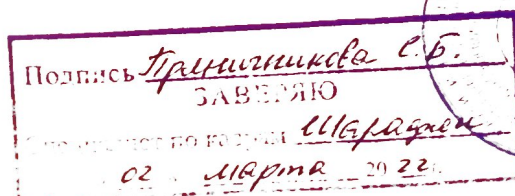 Подпись Пряничникова С.Б.
ЗАВЕРЯЮ
по кадрам
02 марта 2022 г.